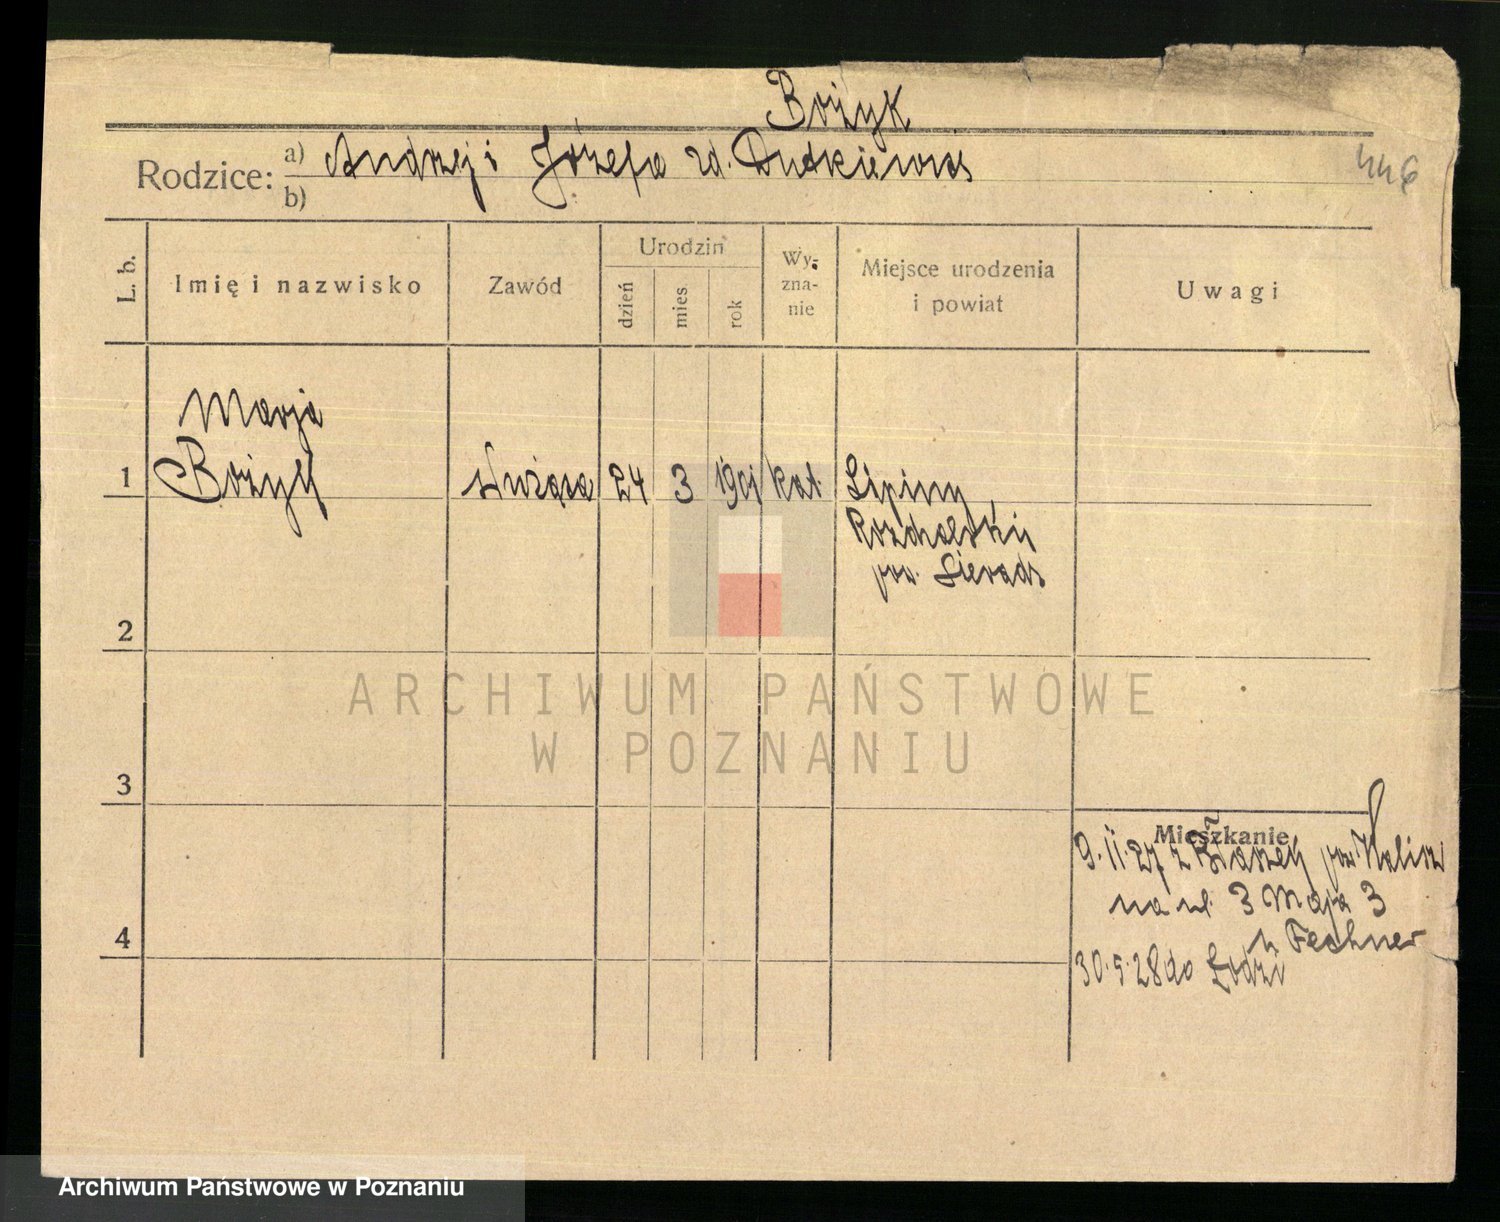 Bożyk
Rodzice: a) Andrzej i Józefa zd. Dutkiewicz
b)
446
L. b. Imię i nazwisko Zawód Urodzin Wy-
zna-
nie Miejsce urodzenia
i powiat Uwagi
dzień mies. rok
Marja
1 Bożyk służąca 24 3 1901 kat. Lipiny
pow. Sieradz
2
3
4
Mieszkanie
9.11.27 z Błaszek pow. Kalisz
na ul. 3 Maja 3
u Fechner
30.5.28 do Łodzi
ARCHIWUM PAŃSTWOWE
W POZNANIU
Archiwum Państwowe w Poznaniu